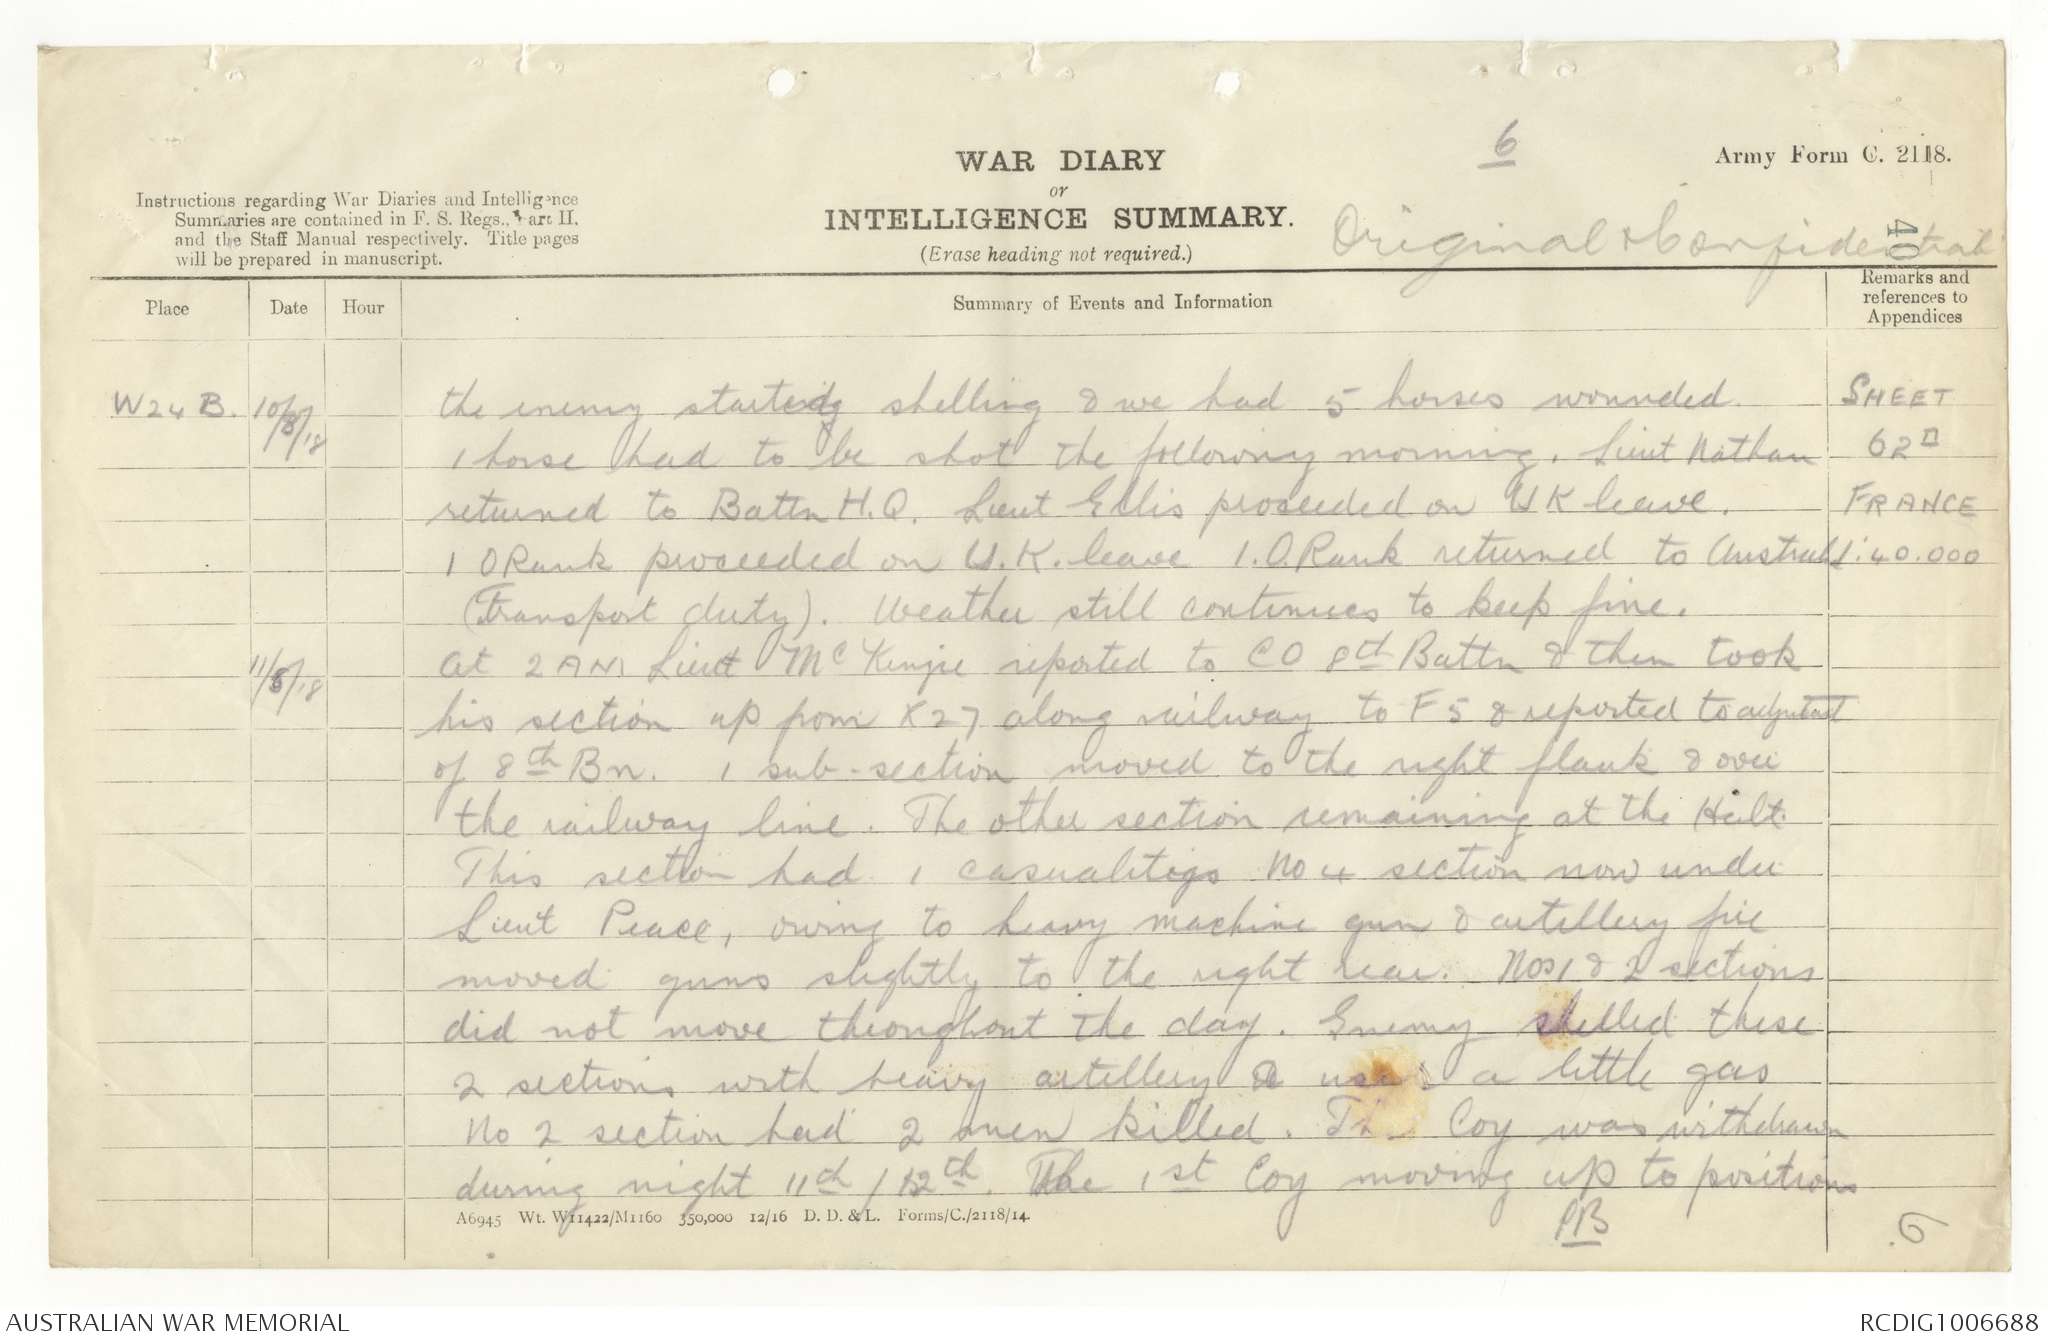 6
Army Form C. 2118.
WAR DIARY
or
INTELLIGENCE SUMMARY.
(Erase heading not required.)
Instructions regarding War Diaries and Intelligence
Summaries are contained in F. S. Regs., Part II.
and the Staff Manual respectively. Title pages
will be prepared in manuscript.
Original & Confidential
40
Place
Date
Hour
Summary of Events and Information
Remarks and
references to
Appendices
W24 B. 10/8/18 the enemy started shelling & we had 5 horses wounded. SHEET
1 horse had to be shot the following morning. Lieut Nathan 62D
returned to Battn H.Q. Lieut Ellis proceeded on UK leave. FRANCE
1 O Rank proceeded on U.K. leave 1.O.Rank returned to Austral 1:40.000
(Transport duty). Weather still continues to keep fine.
11/8/18 at 2 AM Lieut McKenzie reported to CO 8th Battn & then took
his section up from X27 along railway to F5 & reported to adjutant
of 8th Bn. 1 sub-section moved to the right flank & over
the railway line. The other section remaining at the Halt.
This section had 1 casualties No 4 section now under
Lieut Peace, owing to heavy machine gun & artillery fire
moved guns slightly to the right rear. Nos 1 & 2 sections
did not move throughout the day. Enemy shelled these
2 sections with heavy artillery & used a little gas
No 2 section had 2 men killed. The Coy was withdrawn
during night 11th / 12th. The 1st Coy moving up to positions
A6945 Wt. W11422/M1160 350,000 12/16 D. D. & L. Forms/C./2118/14.
PB
6
AUSTRALIAN WAR MEMORIAL
RCDIG1006688